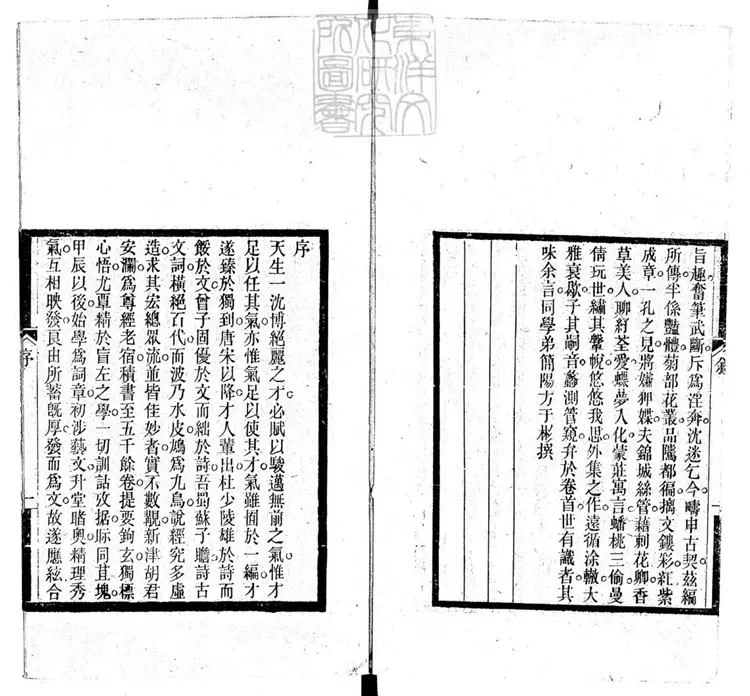 東洋文
化研究
所圖書
旨趣奮筆武斷斥為淫奔沈迷乞今疇申古契茲編
所傳半係豔體菊部花叢品隲都徧摛文鏤彩紅紫
成章一孔之見將嫌狎媟夫錦城絲管藉刺花卿香
草美人聊紓荃愛蝶夢入化蒙莊寓言蟠桃三偷曼
倩玩世繡其鞶帨悠悠我思外集之作遠循涂轍大
雅衰歇子其嗣音蠡測管窺弁於卷首世有識者其
味余言同學弟簡陽方于彬撰
序
天生一沈博絕麗之才必賦以駿邁無前之氣惟才
足以任其氣亦惟氣足以使其才氣雖囿於一編才
遂臻於獨到唐宋以降才人輩出杜少陵雄於詩而
餒於文曾子固優於文而絀於詩吾蜀蘇子瞻詩古
文詞橫絕百代而波乃水皮鳩為九鳥說經究多虛
造求其宏總眾流並皆佳妙者實不數覯新津胡君
安瀾為尊經老宿積書至五千餘卷提要鉤玄獨標
心悟尤覃精於盲左之學一切訓詁攷据眎同其塊
甲辰以後始學為詞章初涉藝文升堂啫奧精理秀
氣互相映發良由所蓄旣厚發而為文故遂應絃合
序
一